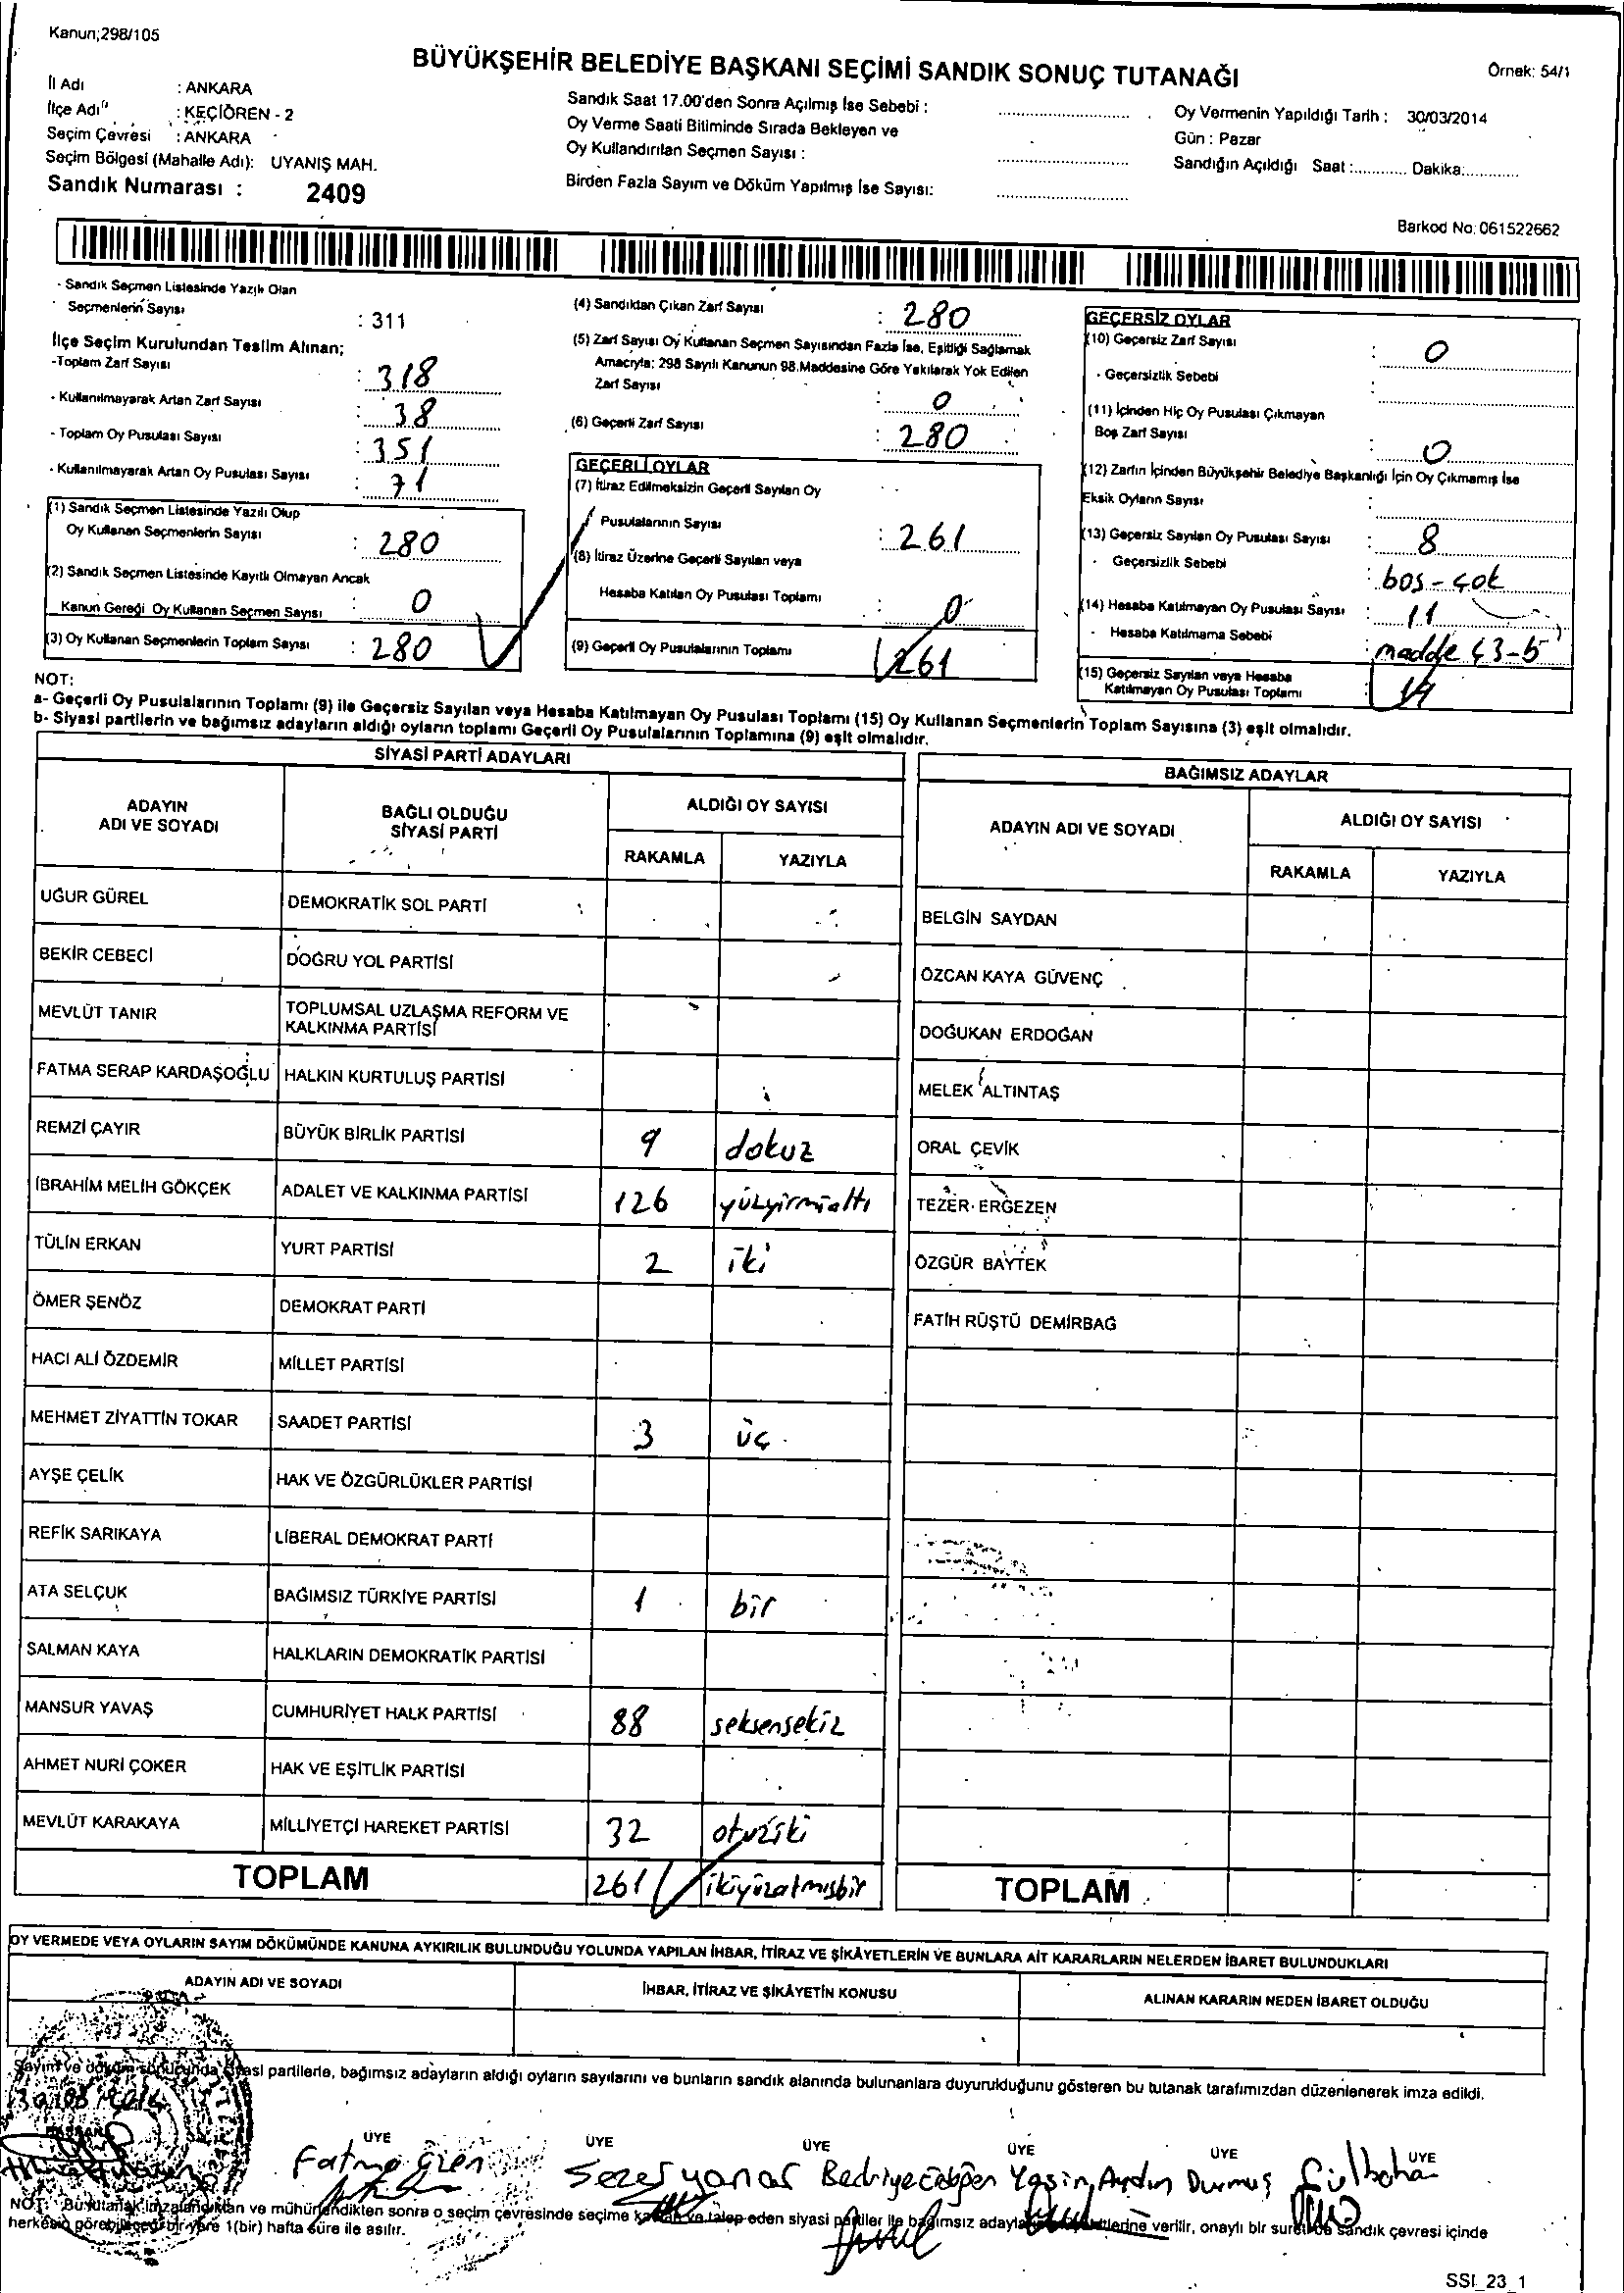 Kanun;298/105
BÜYÜKŞEHİR BELEDİYE BAŞKANI SEÇİMİ SANDIK SONUÇ TUTANAĞI
Örnek: 54/1
İl Adı : ANKARA
İlçe Adı : KEÇİÖREN - 2
Seçim Çevresi : ANKARA
Seçim Bölgesi (Mahalle Adı): UYANIŞ MAH.
Sandık Numarası : 2409
Sandık Saat 17.00'den Sonra Açılmış İse Sebebi :
Oy Verme Saati Bitiminde Sırada Bekleyen ve
Oy Kullandırılan Seçmen Sayısı :
Birden Fazla Sayım ve Döküm Yapılmış İse Sayısı:
Oy Vermenin Yapıldığı Tarih : 30/03/2014
Gün : Pazar
Sandığın Açıldığı Saat :............ Dakika:............
Barkod No: 061522662
- Sandık Seçmen Listesinde Yazılı Olan
Seçmenlerin Sayısı : 311
İlçe Seçim Kurulundan Teslim Alınan;
-Toplam Zarf Sayısı : 318
- Kullanılmayarak Artan Zarf Sayısı : 38
- Toplam Oy Pusulası Sayısı : 351
- Kullanılmayarak Artan Oy Pusulası Sayısı : 71
(1) Sandık Seçmen Listesinde Yazılı Olup
Oy Kullanan Seçmenlerin Sayısı : 280
(2) Sandık Seçmen Listesinde Kayıtlı Olmayan Ancak
Kanun Gereği Oy Kullanan Seçmen Sayısı : 0
(3) Oy Kullanan Seçmenlerin Toplam Sayısı : 280
(4) Sandıktan Çıkan Zarf Sayısı : 280
(5) Zarf Sayısı Oy Kullanan Seçmen Sayısından Fazla İse, Eşitliği Sağlamak
Amacıyla; 298 Sayılı Kanunun 98.Maddesine Göre Yakılarak Yok Edilen
Zarf Sayısı : 0
(6) Geçerli Zarf Sayısı : 280
GEÇERLİ OYLAR
(7) İtiraz Edilmeksizin Geçerli Sayılan Oy
Pusulalarının Sayısı : 261
(8) İtiraz Üzerine Geçerli Sayılan veya
Hesaba Katılan Oy Pusulası Toplamı : 0
(9) Geçerli Oy Pusulalarının Toplamı 261
GEÇERSİZ OYLAR
(10) Geçersiz Zarf Sayısı : 0
- Geçersizlik Sebebi :
(11) İçinden Hiç Oy Pusulası Çıkmayan
Boş Zarf Sayısı : 0
(12) Zarfın İçinden Büyükşehir Belediye Başkanlığı İçin Oy Çıkmamış İse
Eksik Oyların Sayısı :
(13) Geçersiz Sayılan Oy Pusulası Sayısı : 8
- Geçersizlik Sebebi : boş - çok
(14) Hesaba Katılmayan Oy Pusulası Sayısı : 11
- Hesaba Katılmama Sebebi : madde 43-5
(15) Geçersiz Sayılan veya Hesaba
Katılmayan Oy Pusulası Toplamı : 19
NOT:
a- Geçerli Oy Pusulalarının Toplamı (9) ile Geçersiz Sayılan veya Hesaba Katılmayan Oy Pusulası Toplamı (15) Oy Kullanan Seçmenlerin Toplam Sayısına (3) eşit olmalıdır.
b- Siyasi partilerin ve bağımsız adayların aldığı oyların toplamı Geçerli Oy Pusulalarının Toplamına (9) eşit olmalıdır.
SİYASİ PARTİ ADAYLARI
ADAYIN ADI VE SOYADI
BAĞLI OLDUĞU SİYASİ PARTİ
ALDIĞI OY SAYISI
RAKAMLA YAZIYLA
UĞUR GÜREL DEMOKRATİK SOL PARTİ
BEKİR CEBECİ DOĞRU YOL PARTİSİ
MEVLÜT TANIR TOPLUMSAL UZLAŞMA REFORM VE KALKINMA PARTİSİ
FATMA SERAP KARDAŞOĞLU HALKIN KURTULUŞ PARTİSİ
REMZİ ÇAYIR BÜYÜK BİRLİK PARTİSİ 9 dokuz
İBRAHİM MELİH GÖKÇEK ADALET VE KALKINMA PARTİSİ 126 yüzyirmialtı
TÜLİN ERKAN YURT PARTİSİ 2 iki
ÖMER ŞENÖZ DEMOKRAT PARTİ
HACI ALİ ÖZDEMİR MİLLET PARTİSİ
MEHMET ZİYATTİN TOKAR SAADET PARTİSİ 3 üç
AYŞE ÇELİK HAK VE ÖZGÜRLÜKLER PARTİSİ
REFİK SARIKAYA LİBERAL DEMOKRAT PARTİ
ATA SELÇUK BAĞIMSIZ TÜRKİYE PARTİSİ 1 bir
SALMAN KAYA HALKLARIN DEMOKRATİK PARTİSİ
MANSUR YAVAŞ CUMHURİYET HALK PARTİSİ 88 seksensekiz
AHMET NURİ ÇOKER HAK VE EŞİTLİK PARTİSİ
MEVLÜT KARAKAYA MİLLİYETÇİ HAREKET PARTİSİ 32 otuziki
TOPLAM 261 ikiyüzatmışbir
BAĞIMSIZ ADAYLAR
ADAYIN ADI VE SOYADI
ALDIĞI OY SAYISI
RAKAMLA YAZIYLA
BELGİN SAYDAN
ÖZCAN KAYA GÜVENÇ
DOĞUKAN ERDOĞAN
MELEK ALTINTAŞ
ORAL ÇEVİK
TEZER ERGEZEN
ÖZGÜR BAYTEK
FATİH RÜŞTÜ DEMİRBAĞ
TOPLAM
OY VERMEDE VEYA OYLARIN SAYIM DÖKÜMÜNDE KANUNA AYKIRILIK BULUNDUĞU YOLUNDA YAPILAN İHBAR, İTİRAZ VE ŞİKÂYETLERİN VE BUNLARA AİT KARARLARIN NELERDEN İBARET BULUNDUKLARI
ADAYIN ADI VE SOYADI
İHBAR, İTİRAZ VE ŞİKÂYETİN KONUSU
ALINAN KARARIN NEDEN İBARET OLDUĞU
Sayım ve döküm sonucunda siyasi partilerle, bağımsız adayların aldığı oyların sayılarını ve bunların sandık alanında bulunanlara duyurulduğunu gösteren bu tutanak tarafımızdan düzenlenerek imza edildi.
30/03/2014
BAŞKAN ÜYE ÜYE ÜYE ÜYE ÜYE ÜYE
Fatma Sezer yanar Bedriye Yasin Aydın Durmuş Gülbahar
NOT: Bu tutanak imzalandıktan ve mühürlendikten sonra o seçim çevresinde seçime katılan ve talep eden siyasi partiler ile bağımsız adayların verilir, onaylı bir sureti de sandık çevresi içinde
herkesin görebileceği bir yere 1(bir) hafta süre ile asılır.
SSI_23_1